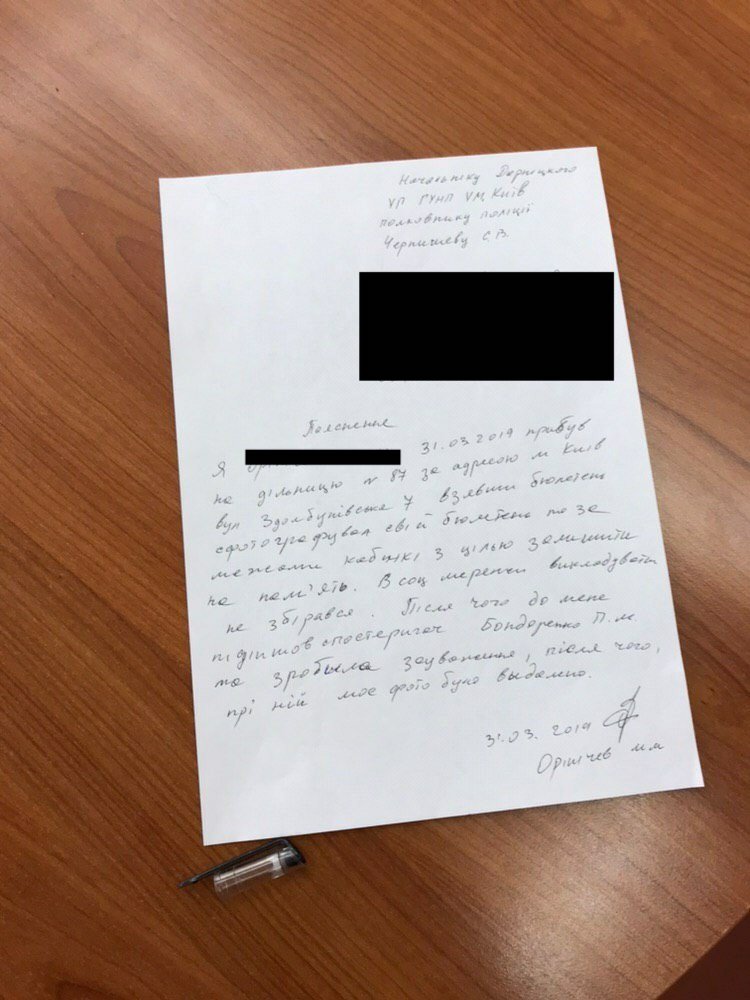 Начальніку Дарницкого
УП ГУНП УМ Київ
полковнику поліції
С.В.
Пояснення
Я 31.03.2019 прибув
на дільницю № 87 за адресою м Київ
вул Здолбунівська 7 взявши бюлетень
сфотографував свій бюлетень та за
межами кабінкі з цілью залишити
на пам'ять. В соц мережи викладувати
не збірався. Після чого до мене
підішов спостерігач Бондаренко П.М.
та зробыла зауваження, після чого,
прі ній моє фото було выдалено.
31.03.2019
м м